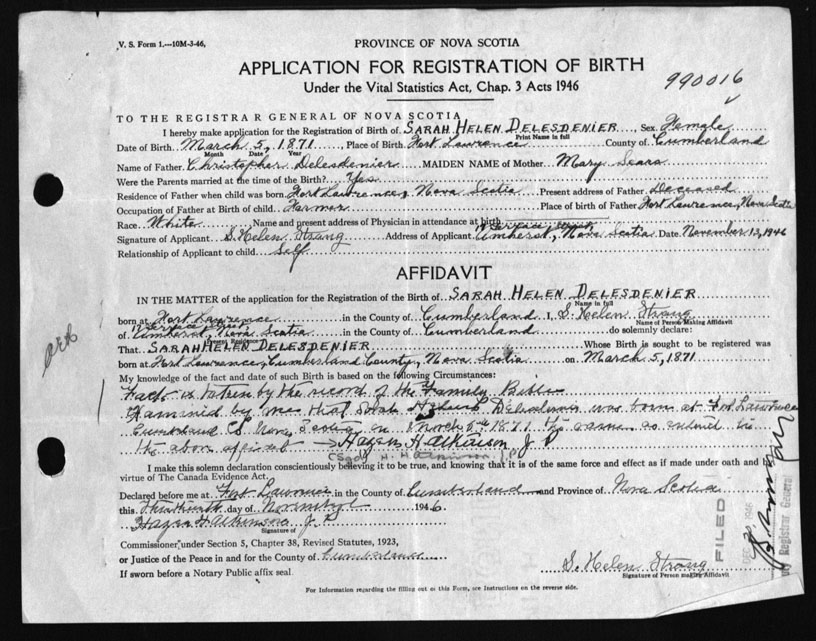 V. S. Form 1.—10M-3-46.
PROVINCE OF NOVA SCOTIA
APPLICATION FOR REGISTRATION OF BIRTH
990016
Under the Vital Statistics Act, Chap. 3 Acts 1946
TO THE REGISTRAR GENERAL OF NOVA SCOTIA
I hereby make application for the Registration of Birth of SARAH HELEN DELESDENIER Sex Female
Print Name in full
Date of Birth March 5, 1871 Place of Birth Fort Lawrence County of Cumberland
Month Date Year
Name of Father Christopher Delesdenier MAIDEN NAME of Mother Mary Sears
Were the Parents married at the time of the Birth? Yes
Residence of Father when child was born Fort Lawrence, Nova Scotia Present address of Father Deceased
Occupation of Father at Birth of child Farmer Place of birth of Father Fort Lawrence, Nova Scotia
Race White Name and present address of Physician in attendance at birth
Signature of Applicant S. Helen Strang Address of Applicant Amherst, Nova Scotia Date November 13, 1946
Relationship of Applicant to child Self
AFFIDAVIT
IN THE MATTER of the application for the Registration of Birth of SARAH HELEN DELESDENIER
Name in full
born at Fort Lawrence in the County of Cumberland I, S. Helen Strang
Name of Person Making Affidavit
of Amherst, Nova Scotia in the County of Cumberland do solemnly declare:
Present Residence
That SARAH HELEN DELESDENIER Whose Birth is sought to be registered was
born at Fort Lawrence, Cumberland County, Nova Scotia on March 5, 1871
My knowledge of the fact and date of such Birth is based on the following Circumstances:
Facts is taken by the record of the Family Bible
by me that Sarah Delesdenier was born at Fort Lawrence
Cumberland Co Nova Scotia on March 5th 1871 the same as
the above
Hazen H Atkinson J P
(Sgd) H. H. Atkinson J.P.
I make this solemn declaration conscientiously believing it to be true, and knowing that it is of the same force and effect as if made under oath and by
virtue of The Canada Evidence Act.
Declared before me at Fort Lawrence in the County of Cumberland and Province of Nova Scotia
this day of 1946
Hazen H Atkinson J P
Signature of
Commissioner under Section 5, Chapter 38, Revised Statutes, 1923,
or Justice of the Peace in and for the County of Cumberland
If sworn before a Notary Public affix seal
S. Helen Strang
Signature of Person making Affidavit
For Information regarding the filling out of this Form, see Instructions on the reverse side.
FILED
1946
Registrar General